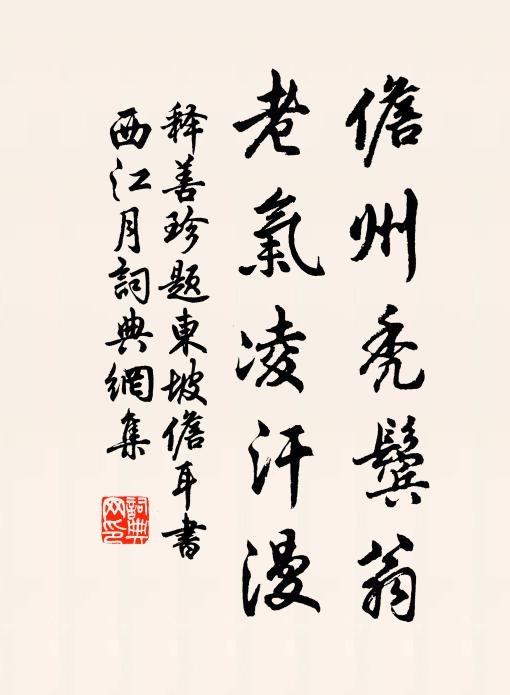 儋州禿鬢翁
老氣凌汗漫
释善珍題東坡儋耳書
西江月詞典網集
詞典网印